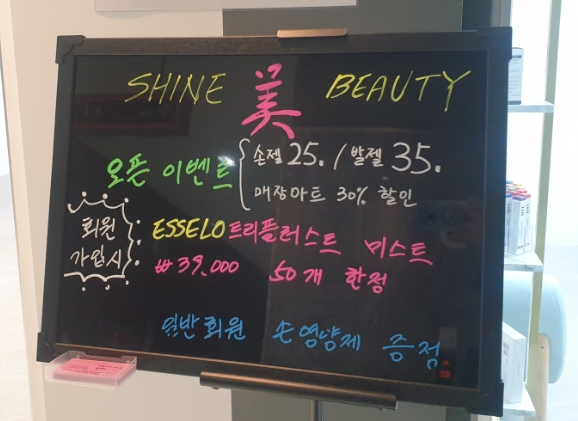 SHINE 美 BEAUTY
오픈 이벤트
손젤 25. / 발젤 35.
매장마트 30% 할인
회원
가입시
ESSELO 트리플러스트 미스트
₩39,000 50개 한정
일반회원 손영양제 증점